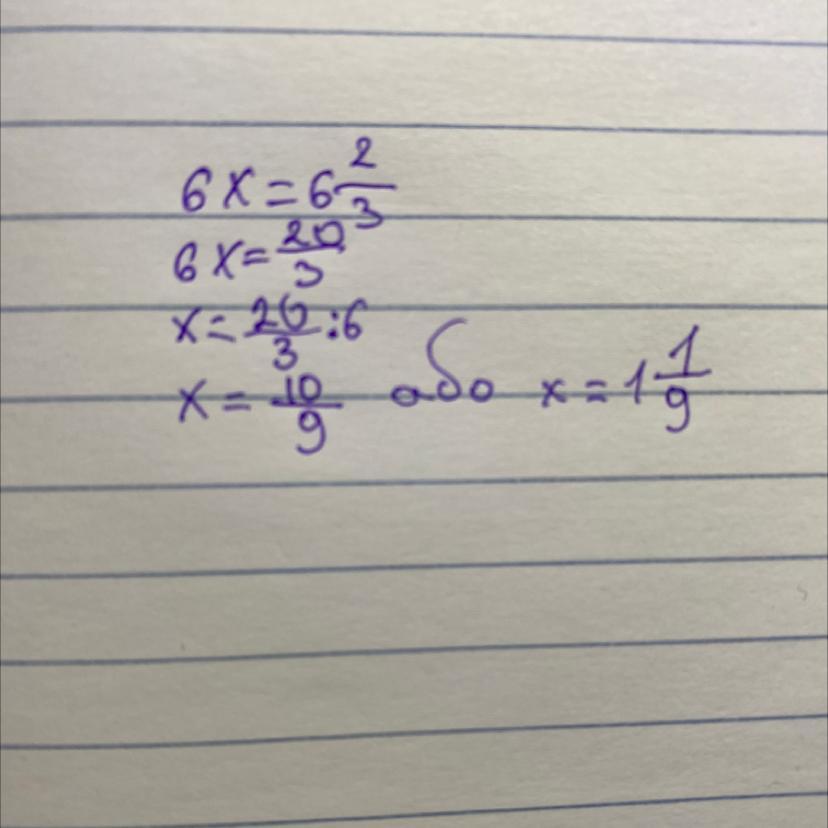 6x=6 2/3
6x=20/3
x=20/3:6
x=10/9 або x=1 1/9